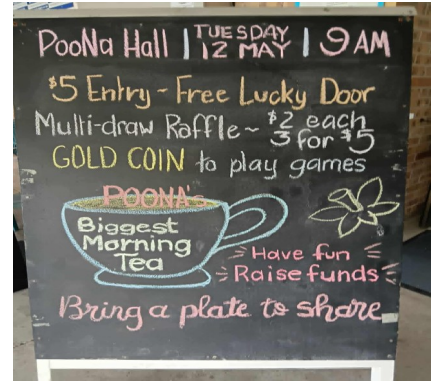 PooNa Hall | TUESDAY 12 MAY | 9 AM
$5 Entry ~ Free Lucky Door
Multi-draw Raffle ~ $2 each
3 for $5
GOLD COIN to play games
POONA'S
Biggest
Morning
Tea
Have fun
Raise funds
Bring a plate to share